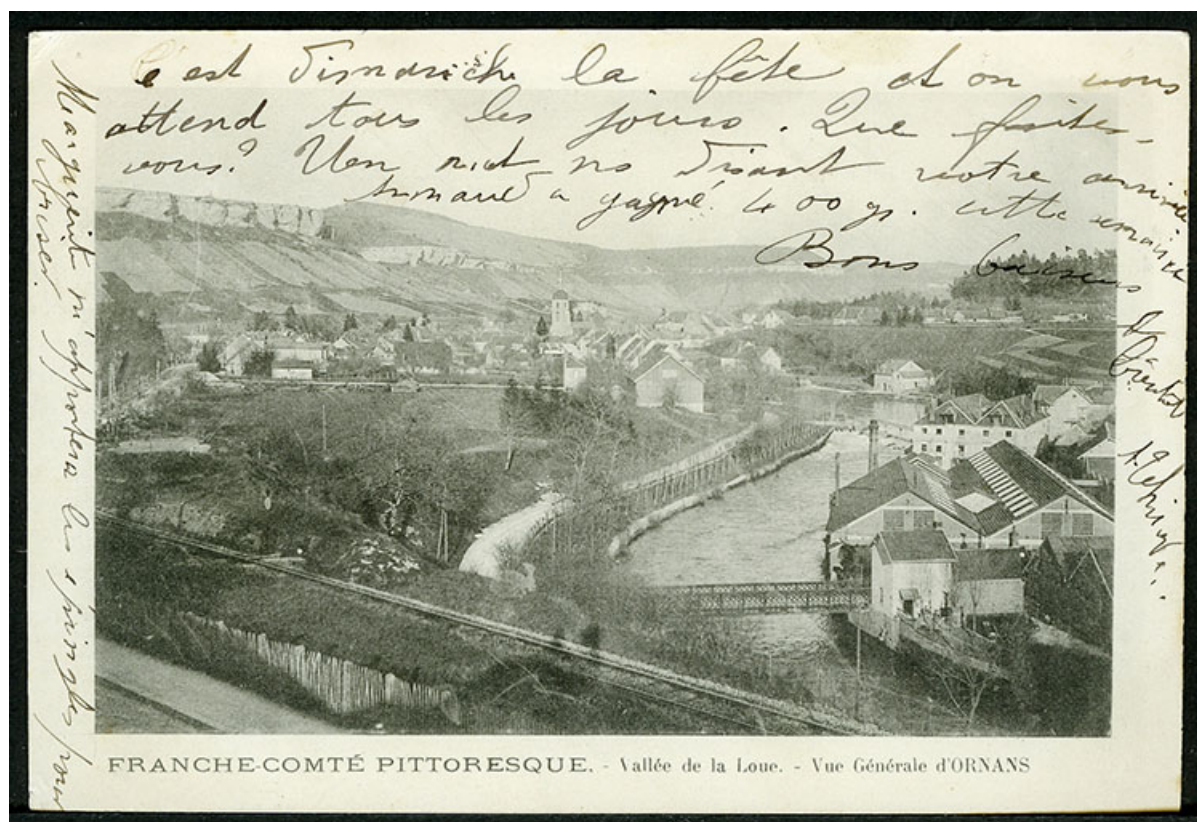 c'est Dimanche la fête et on vous
attend tous les jours. Que faites-
vous? Un mot ns disant votre arrivée.
a gagné 400 gr. cette semaine
Bons baisers
A Bientôt
Marguerite m'apportera les épingles pour
friser
FRANCHE-COMTÉ PITTORESQUE. - Vallée de la Loue. - Vue Générale d'ORNANS